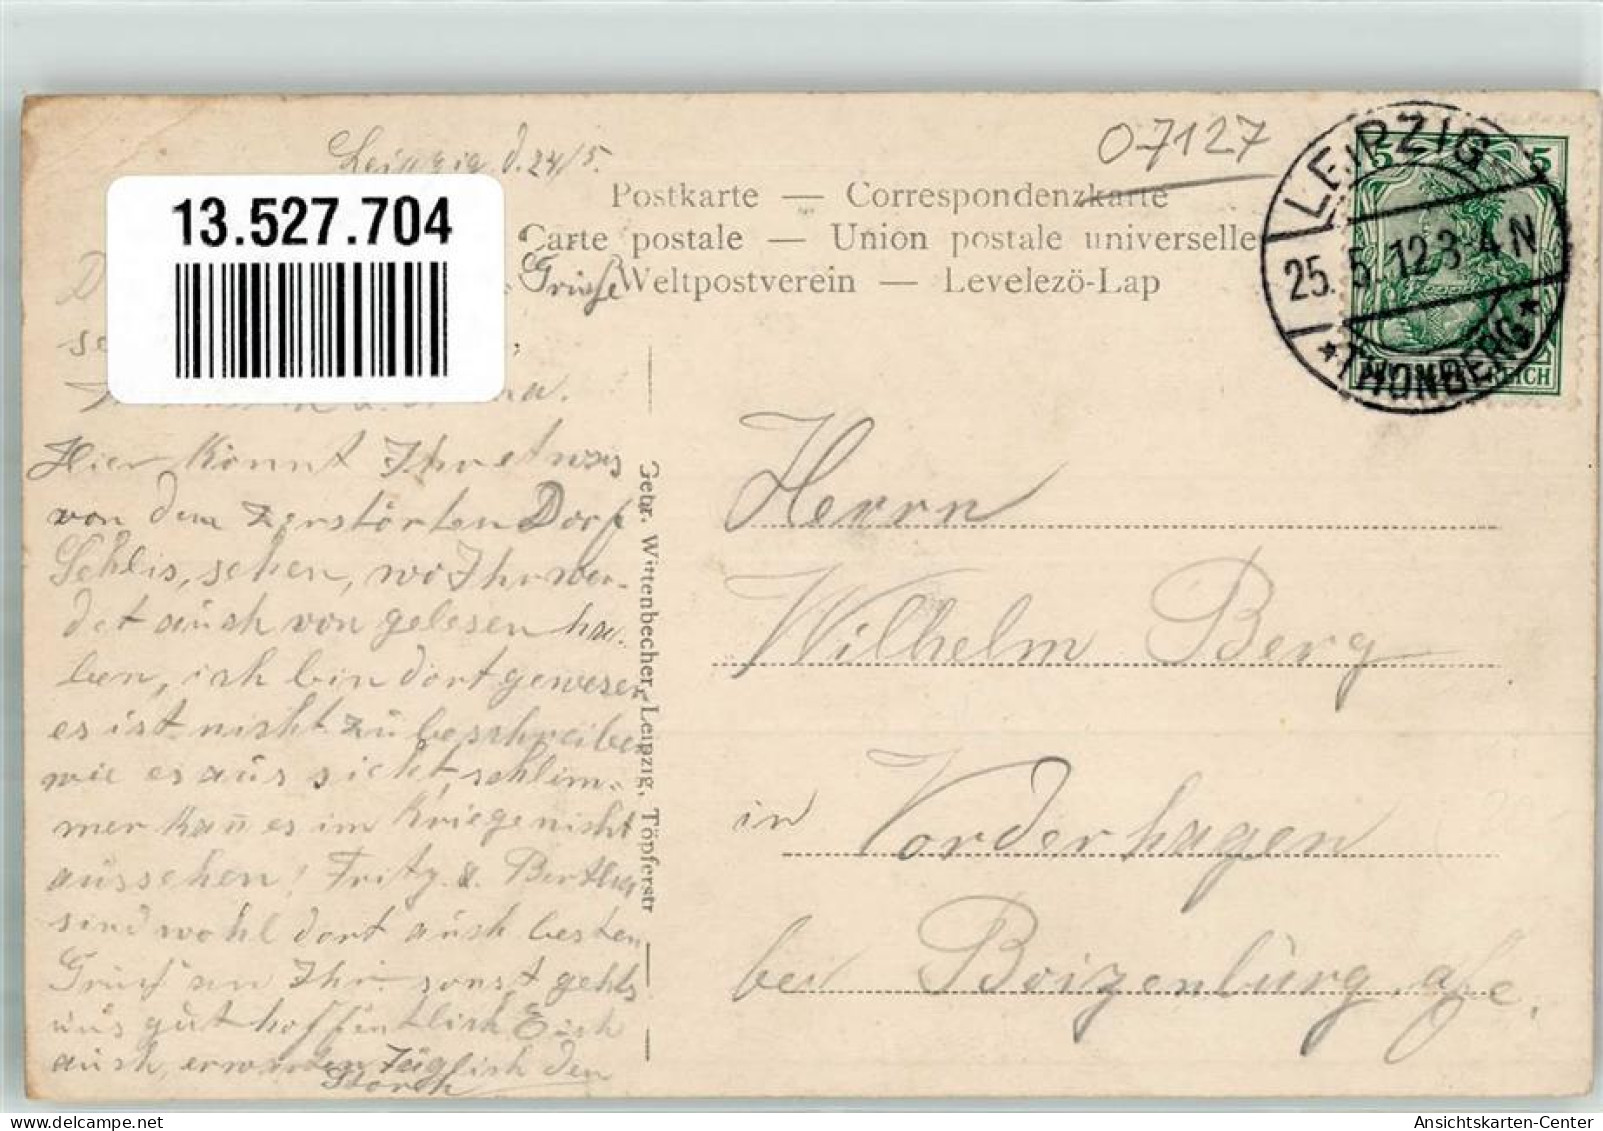 Leipzig d. 24/5.
07127
13.527.704
Postkarte — Correspondenzkarte
Carte postale — Union postale universelle
Weltpostverein — Levelező-Lap
LEIPZIG
25. 5. 12 3-4 N
* THONBERG *
5 5
Grüsse
Hier könnt Ihr etwas
von dem zerstörten Dorf
Sehlis, sehen, wo Ihr wer-
det auch von gelesen ha-
ben, ich bin dort gewesen
es ist nicht zu beschreiben
wie es aus sieht, schlim-
mer kan̄ es im Kriege nicht
aussehen! Fritz. & Bertha
sind wohl dort auch besten
Gruß an Ihr. sonst gehts
uns gut hoffentlich Euch
auch, erwarten täglich den
Storch
Gebr. Wittenbecher, Leipzig, Töpferstr
Herrn
Wilhelm Berg
in Vorderhagen
bei Boizenburg a/e.
Ansichtskarten-Center